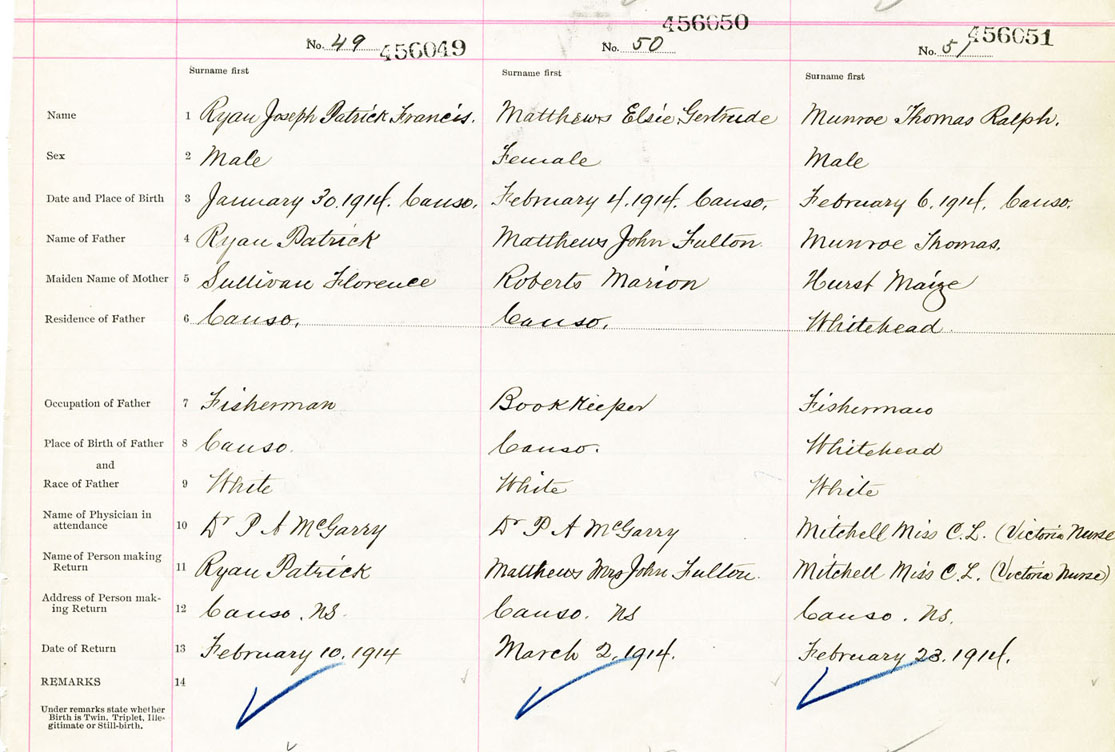 No. 49 456049 No. 50 456050 No. 51 456051
Surname first Surname first Surname first
Name 1 Ryan Joseph Patrick Francis. Matthews Elsie Gertrude Munroe Thomas Ralph.
Sex 2 Male Female Male
Date and Place of Birth 3 January 30, 1914. Canso. February 4, 1914. Canso. February 6, 1914. Canso.
Name of Father 4 Ryan Patrick Matthews John Fulton. Munroe Thomas.
Maiden Name of Mother 5 Sullivan Florence Roberts Marion Hurst Maize
Residence of Father 6 Canso. Canso. Whitehead.
Occupation of Father 7 Fisherman Bookkeeper Fisherman
Place of Birth of Father 8 Canso. Canso. Whitehead
and
Race of Father 9 White White White
Name of Physician in
attendance 10 Dr P A McGarry Dr P A McGarry Mitchell Miss C. L. (Victoria Nurse
Name of Person making
Return 11 Ryan Patrick Matthews Mrs John Fulton. Mitchell Miss C. L. (Victoria Nurse)
Address of Person mak-
ing Return 12 Canso. NS. Canso. NS Canso. NS.
Date of Return 13 February 10, 1914 March 2, 1914. February 23, 1914.
REMARKS 14
Under remarks state whether
Birth is Twin, Triplet, Ille-
gitimate or Still-birth.